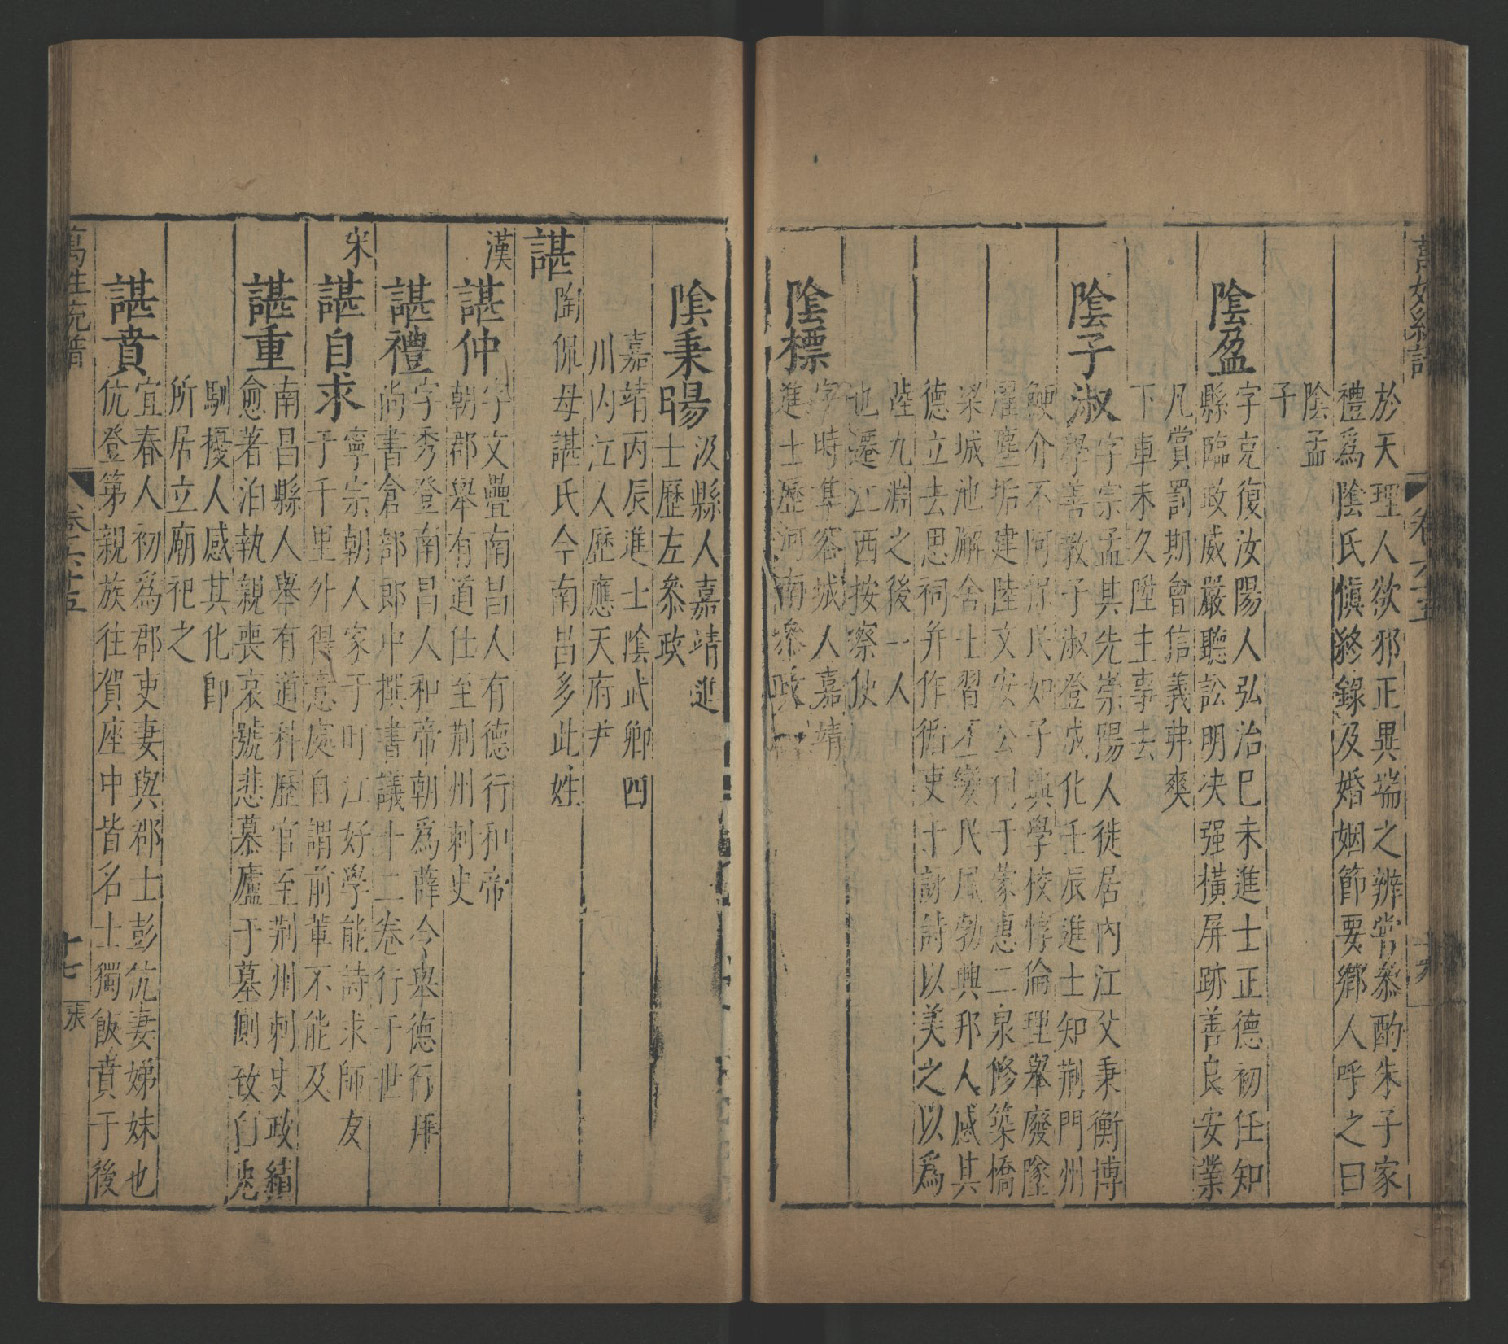 萬姓統譜 卷六十五
於天理人欲邪正異端之辨常叅酌朱子家
禮爲陰氏愼終錄及婚姻節要鄉人呼之曰
陰孟
子
陰盈
字克復汝陽人弘治巳未進士正德初任知
縣臨政威嚴聽訟明決强橫屏跡善良安業
凡賞罰期會信義弗爽
下車未久陞主事去
陰子淑
字宗孟其先崇陽人徙居內江父秉衡博
學善教子淑登成化壬辰進士知荆門州
鯁介不阿視民如子興學校惇倫理舉廢墜
濯塵垢建陸文安公祠于蒙惠二泉修築橋
梁城池廨舍士習丕變民風勃興邦人感其
德立去思祠并作循吏十詠詩以美之以爲
陸九淵之後一人
也遷江西按察使
陰標
字時準容城人嘉靖
進士歷河南叅政
陰秉暘
汲縣人嘉靖進
士歷左叅政
嘉靖丙辰進士陰武卿四
川內江人歷應天府尹
諶
陶侃母諶氏今南昌多此姓
漢
諶仲
字文疊南昌人有德行和帝
朝郡舉有道仕至荆州刺史
諶禮
字秀登南昌人和帝朝爲薛令舉德行拜
尚書倉部郎中撰書議十二卷行于世
宋
諶自求
寧宗朝人家于盯江好學能詩求師友
于千里外得意處自謂前輩不能及
諶重
南昌縣人舉有道科歷官至荆州刺史政績
愈著泊執親喪哀號悲慕廬于墓側致白兎
馴擾人感其化卽
所居立廟祀之
諶賁
宜春人初爲郡吏妻與郡士彭伉妻娣妹也
伉登第親族往賀座中皆名士獨飯賁于後
萬姓統譜 卷六十五 十七 張